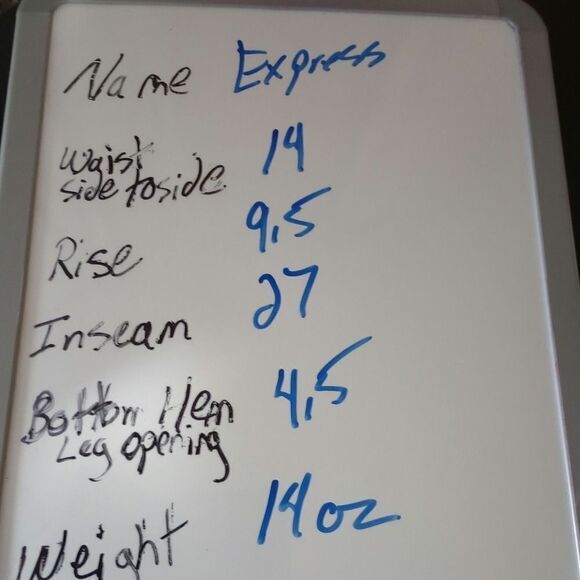 Name Express
Waist 14
side to side
Rise 9.5
Inseam 27
Bottom Hem 4.5
Leg opening
Weight 14 oz